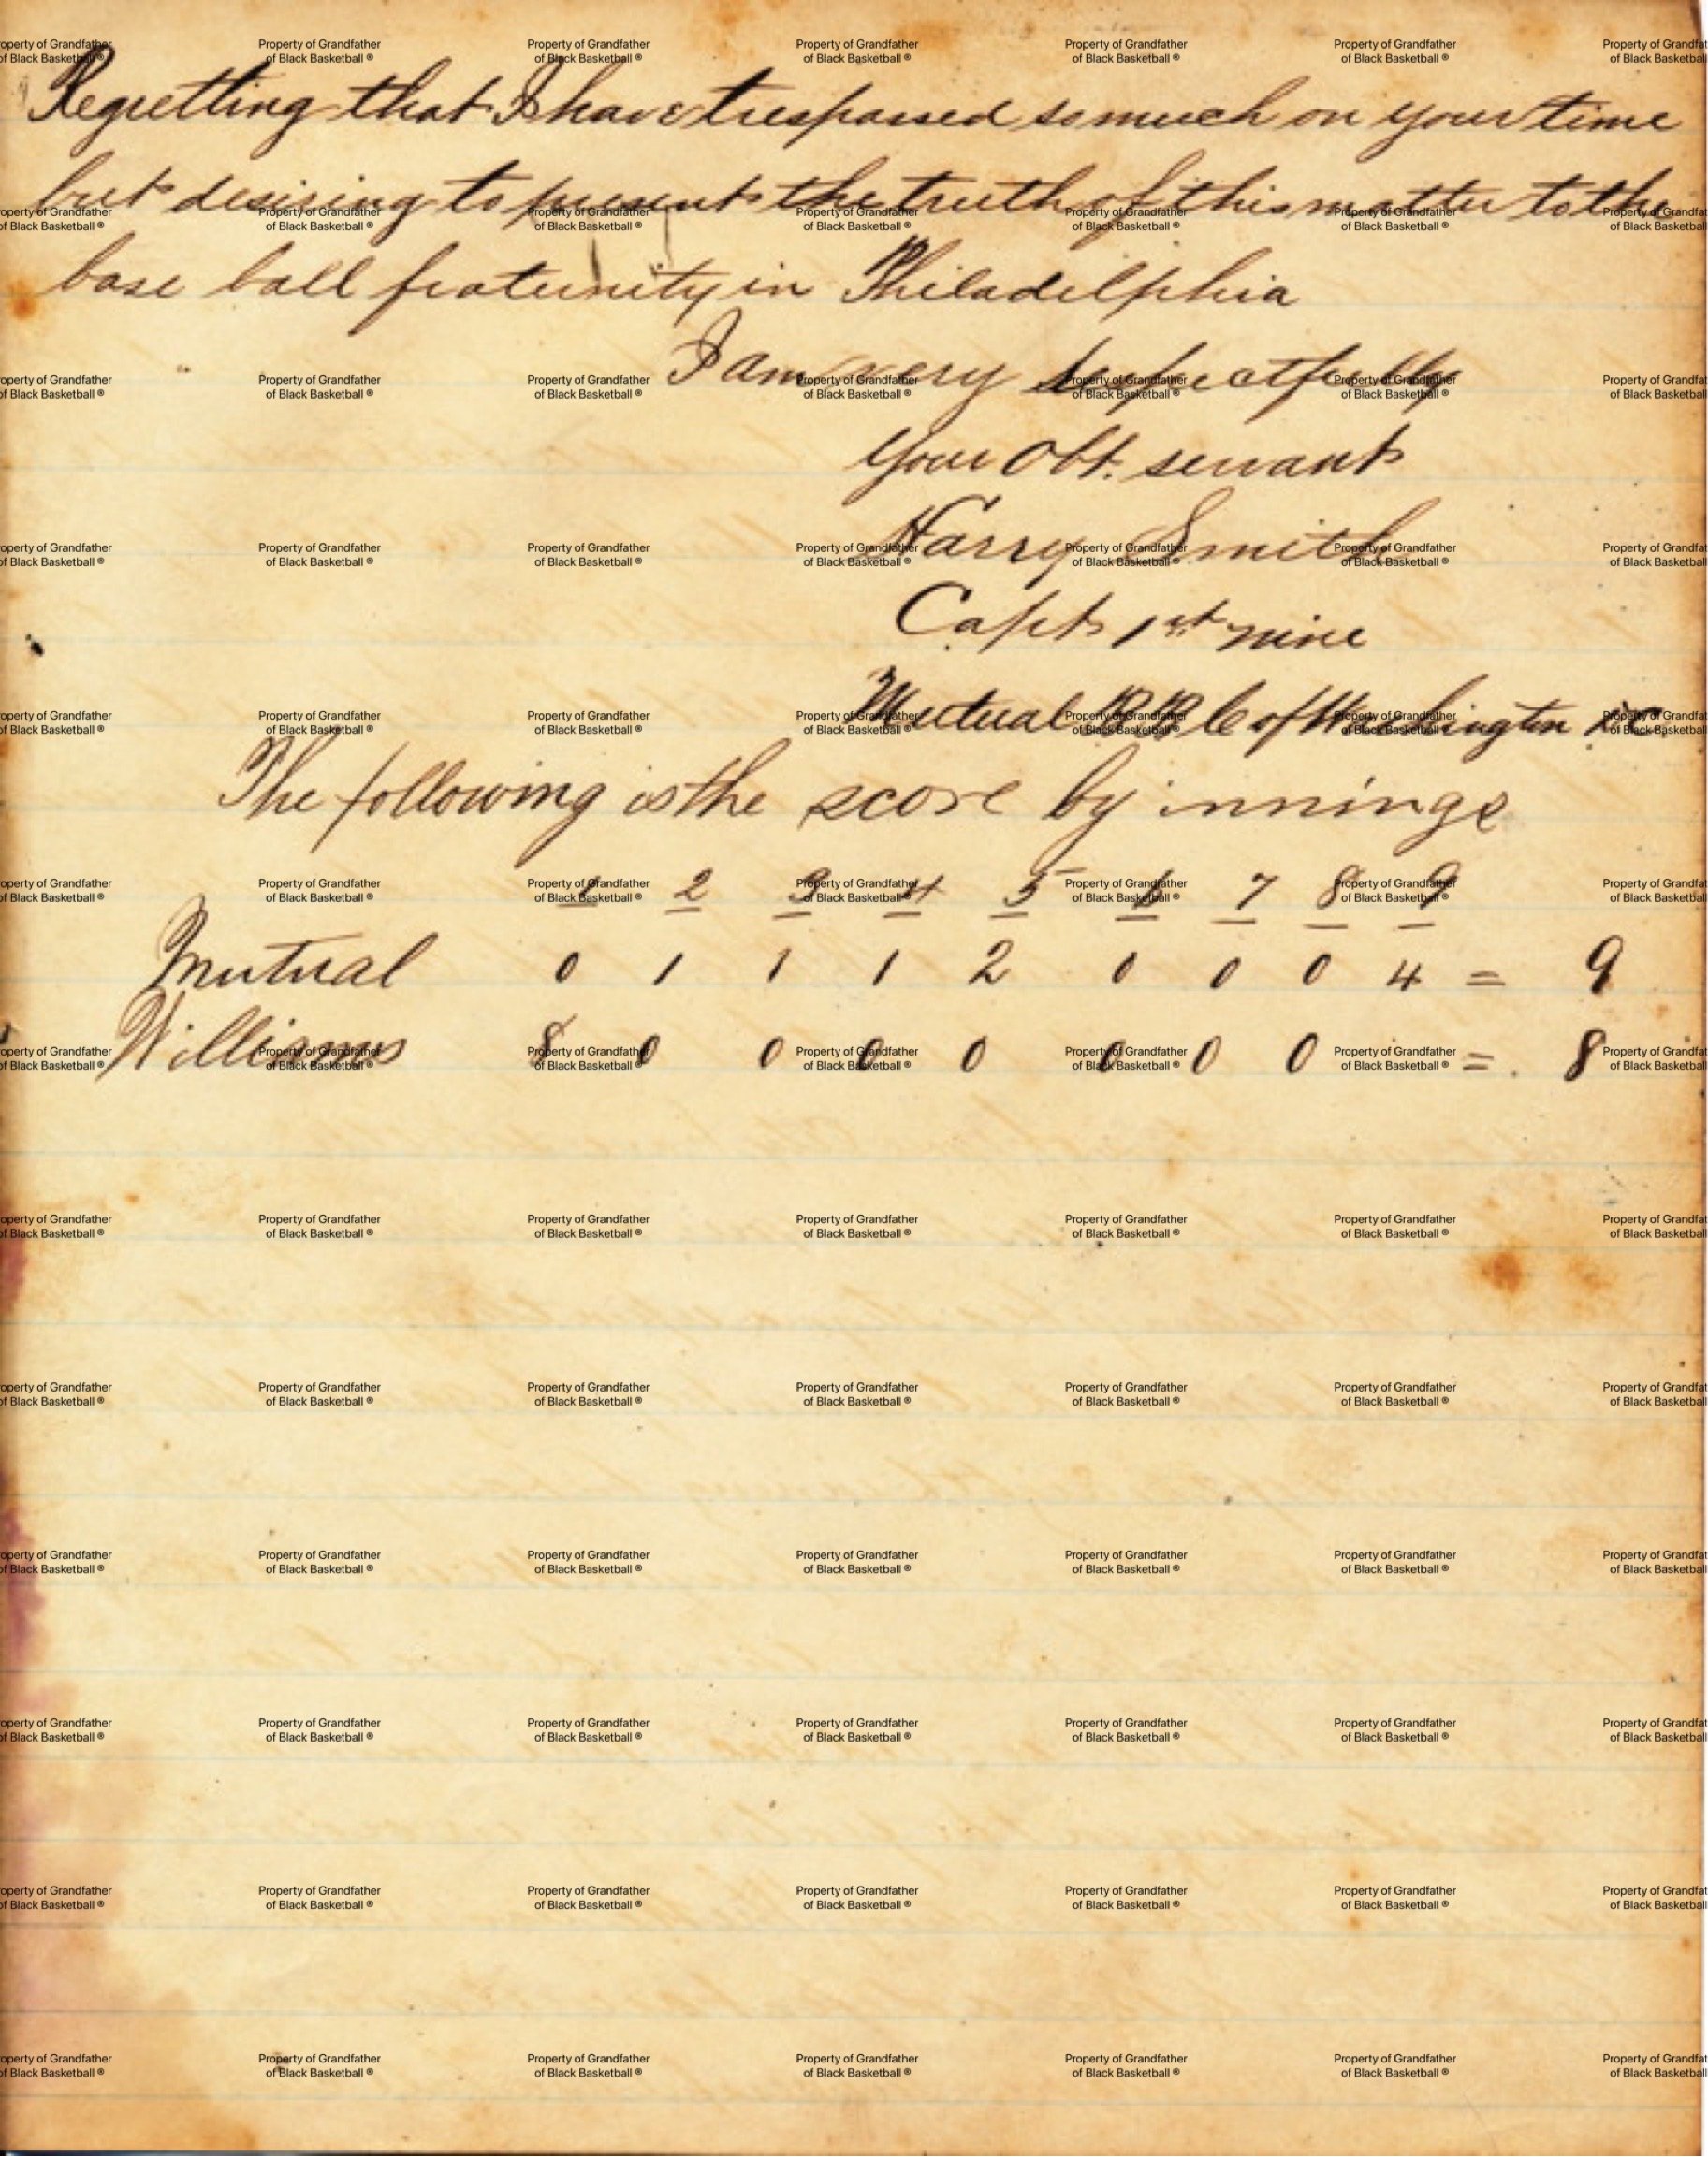 Regretting that I have trespassed so much on your time
but desiring to present the truth of this matter to the
base ball fraternity in Philadelphia
I am very respectfully
your Obt. servant
Harry Smith
Capt 1st nine
Mutual B B C of Washington D.C.
The following is the score by innings
1 2 3 4 5 6 7 8 9
Mutual 0 1 1 1 2 0 0 0 4 = 9
Williams 8 0 0 0 0 0 0 0 = 8
Property of Grandfather
of Black Basketball ®